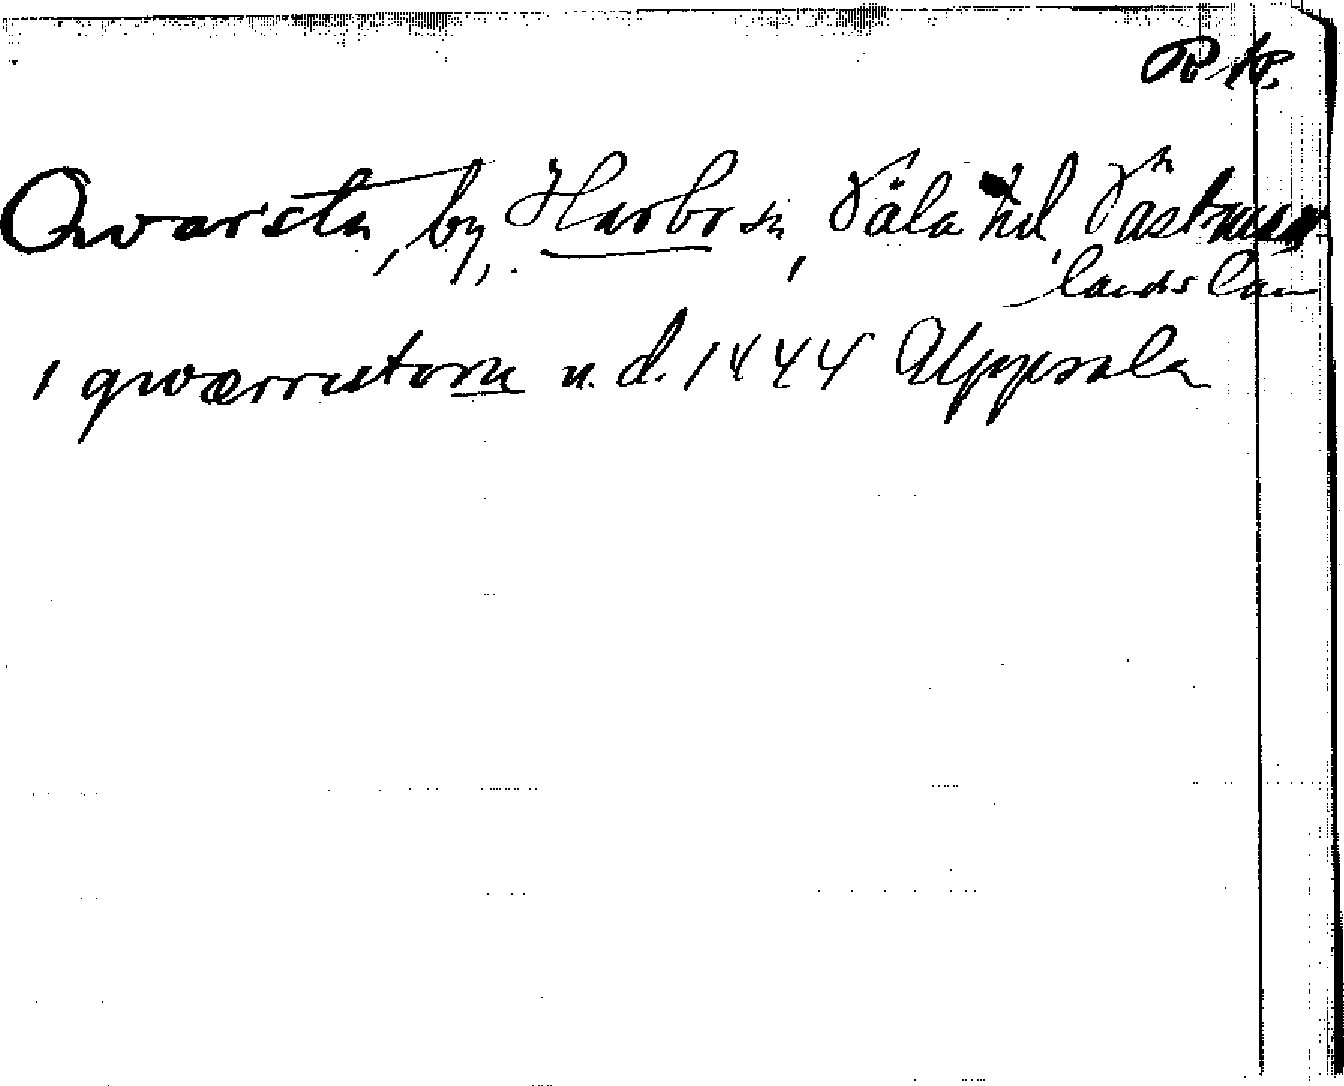 Qvarsta, by, Harbo sn, Våla hd, Västman
lands län
i qwærrustom u. d. 1444 Uppsala